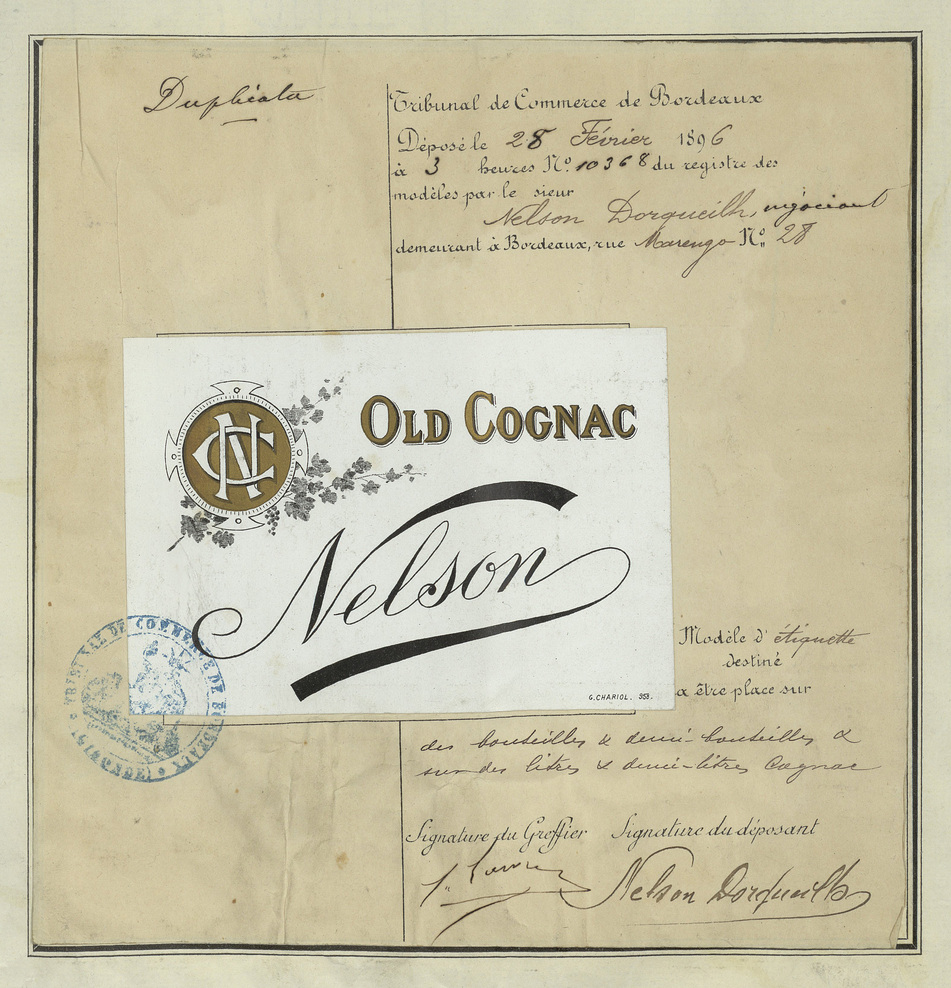 Duplicata
Tribunal de Commerce de Bordeaux
Déposé le 28 Février 1896
à 3 heures No. 10368 du registre des
modèles par le sieur
Nelson Dorqueilh, négociant
demeurant à Bordeaux, rue Marengo No. 28
NC
OLD COGNAC
Nelson
G. CHARIOL. 353.
TRIBUNAL DE COMMERCE DE BORDEAUX
(GIRONDE)
Modèle d'étiquette
destiné
a être place sur
des bouteilles & demi-bouteilles &
sur des litres & demi-litres Cognac
Signature du Greffier Signature du déposant
Nelson Dorqueilh